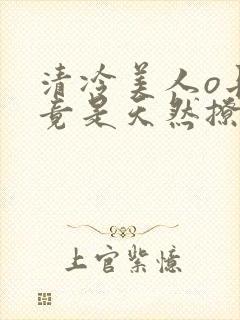 清冷美人o
竟是天然撩
上官紫憶